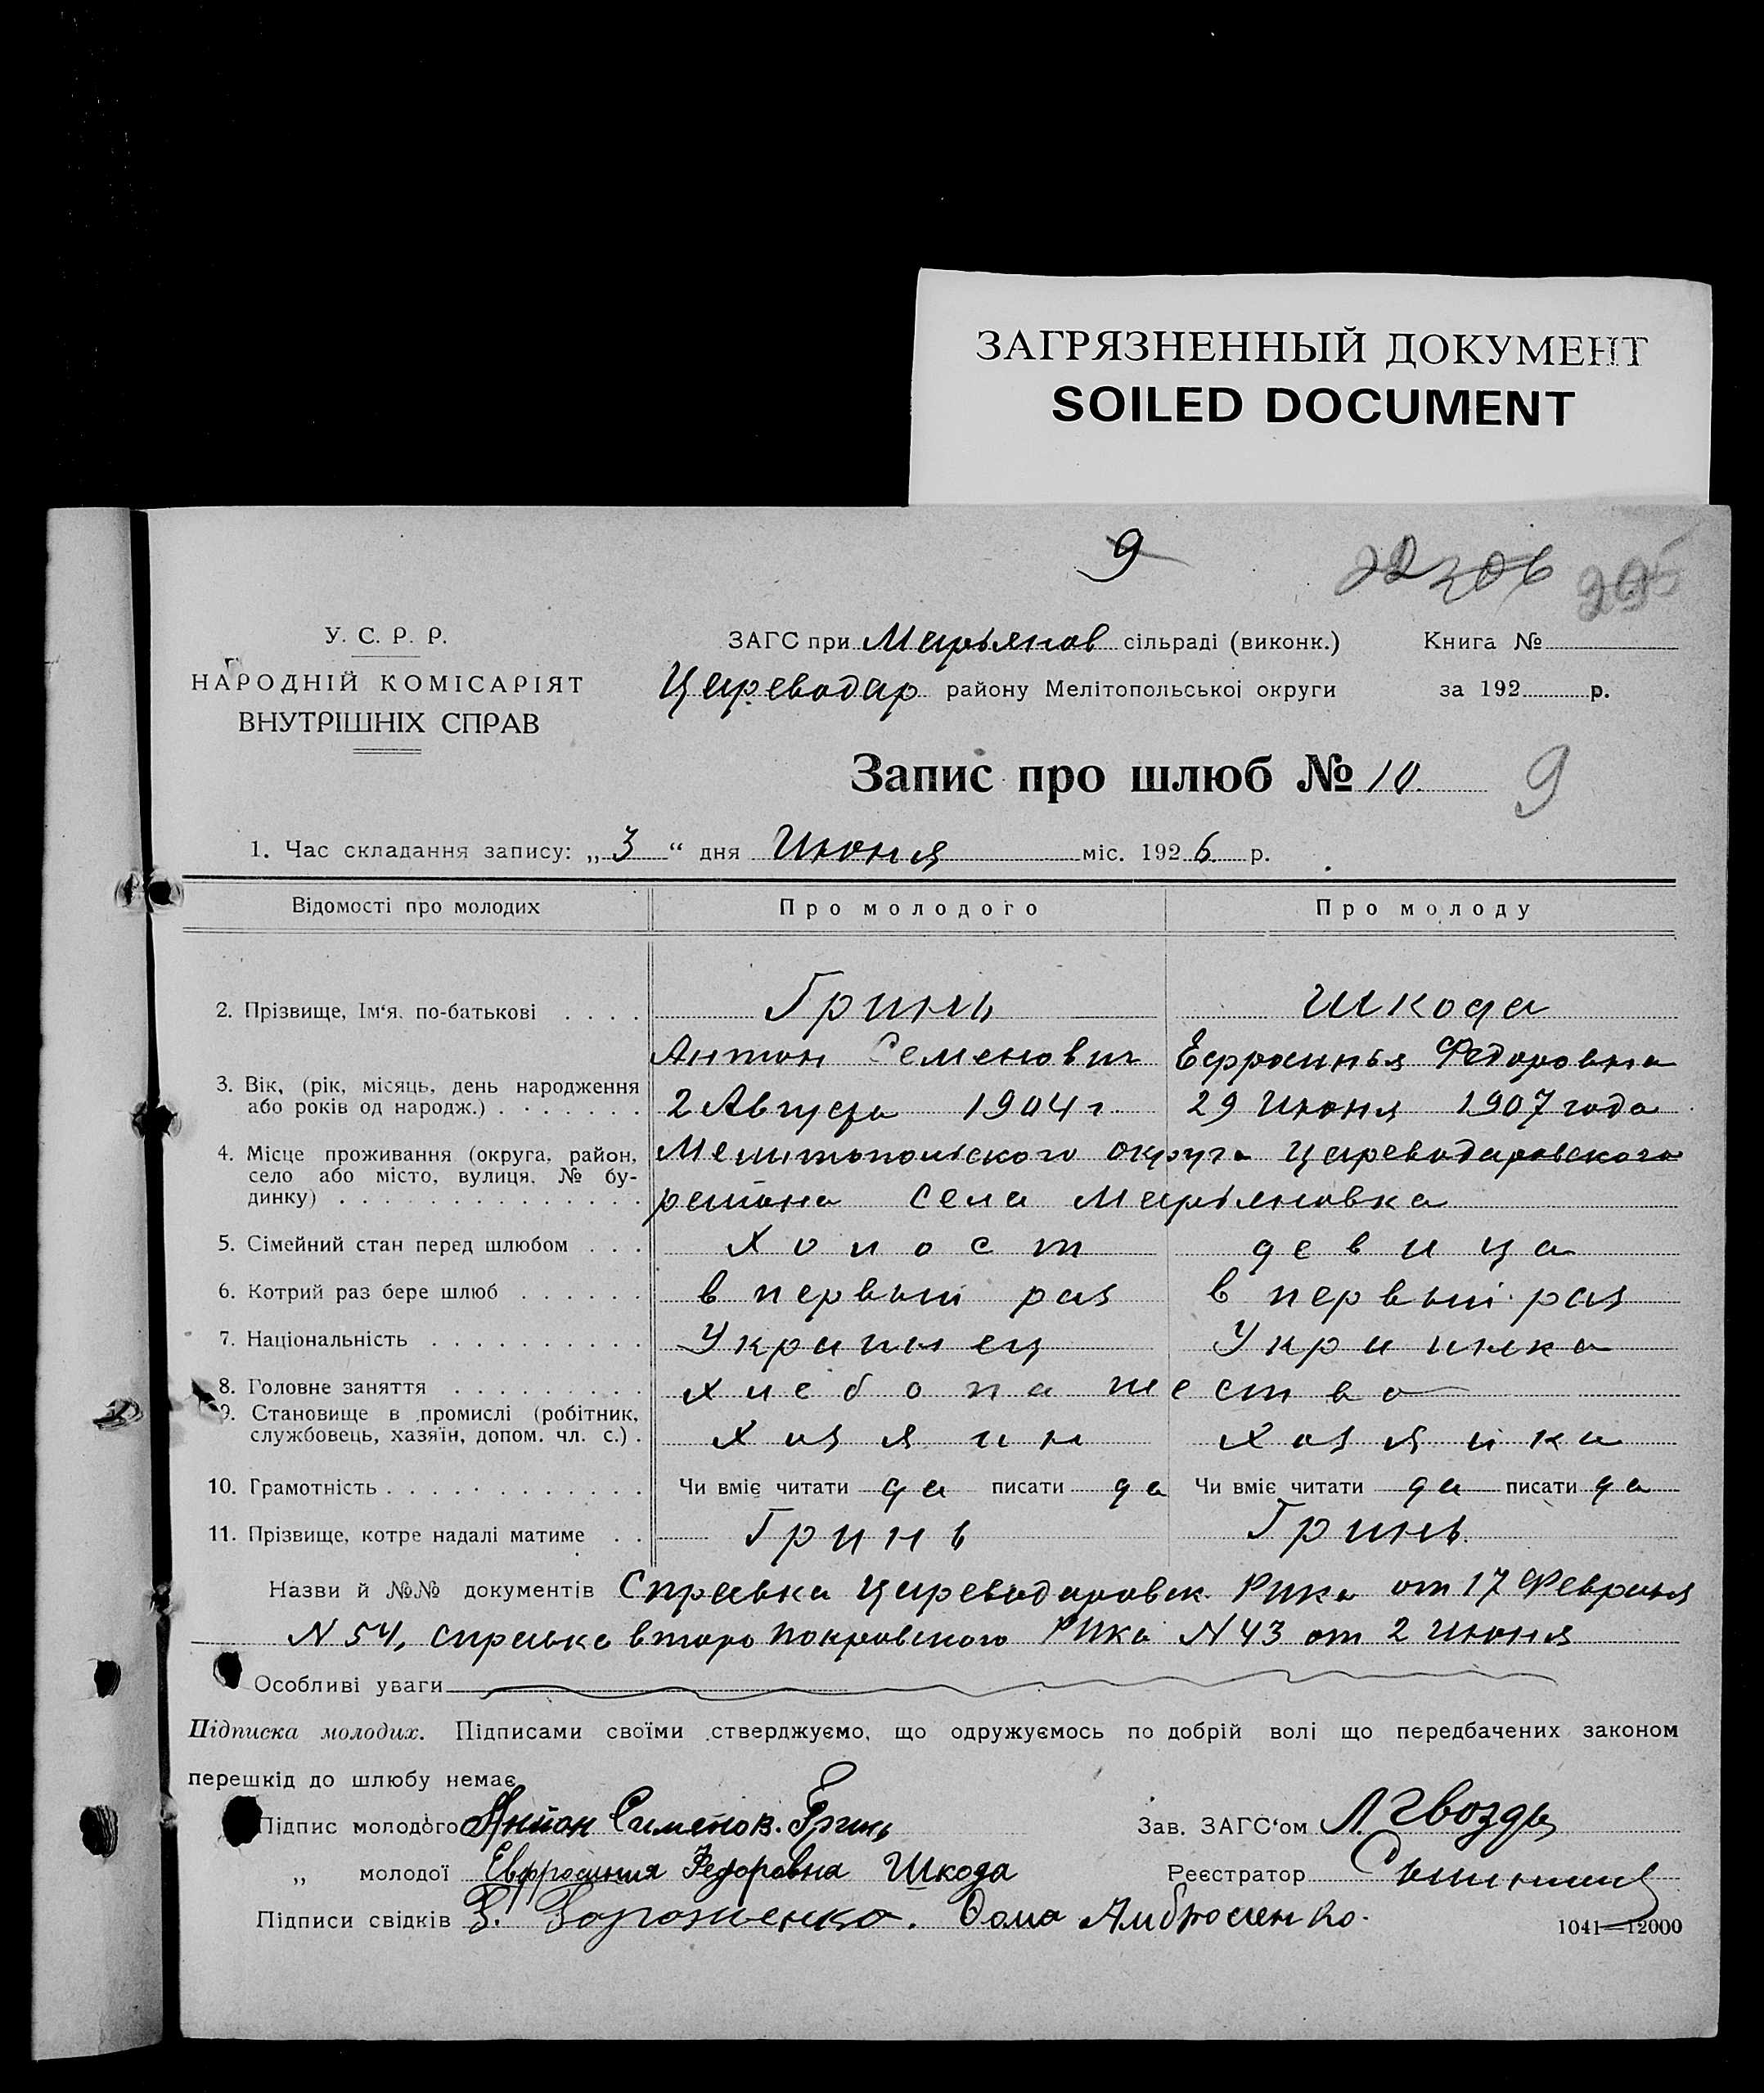 ЗАГРЯЗНЕННЫЙ ДОКУМЕНТ
SOILED DOCUMENT
9
У. С. Р. Р.
НАРОДНІЙ КОМІСАРІЯТ
ВНУТРІШНІХ СПРАВ
ЗАГС при Марьянов сільраді (виконк.) Книга №
Цареводар району Мелітопольської округи за 192 р.
Запис про шлюб № 10. 9
1. Час складання запису: „ 3 “ дня Июня міс. 192 6 р.
Відомості про молодих Про молодого Про молоду
2. Прізвище, Ім‘я, по-батькові . . . . Гринь Шкода
Антон Семенович Ефросинья Федоровна
3. Вік, (рік, місяць, день народження
або років од народж.) . . . . . . . 2 Августа 1904 г 29 Июня 1907 года
4. Місце проживання (округа, район, Мелитопольского округа Цареводаровского
село або місто, вулиця, № бу-
динку) . . . . . . . . . . . . . . района села Марьяновка
5. Сімейний стан перед шлюбом . . . Холост девица
6. Котрий раз бере шлюб . . . . . . в первый раз в первый раз
7. Національність . . . . . . . . . . Украинец Украинка
8. Головне заняття . . . . . . . . . Хлебопашество
9. Становище в промислі (робітник,
службовець, хазяїн, допом. чл. с.) . Хозяин Хозяйка
10. Грамотність . . . . . . . . . . . . Чи вміє читати да писати да Чи вміє читати да писати да
11. Прізвище, котре надалі матиме . . Гринь Гринь
Назви й №№ документів Справка Царевадаровск. Рика от 17 Февраля
N 54, справка второ покровского РИКа N 43 от 2 Июня
Особливі уваги
Підписка молодих. Підписами своїми стверджуємо, що одружуємось по добрій волі що передбачених законом
перешкід до шлюбу немає
Підпис молодого Антон Сименов. Гринь Зав. ЗАГС‘ом Л. Гвоздь
„ молодої Евфросиния Федоровна Шкода Реєстратор
Підписи свідків З. Фома Амбросиенко.
1041—12000